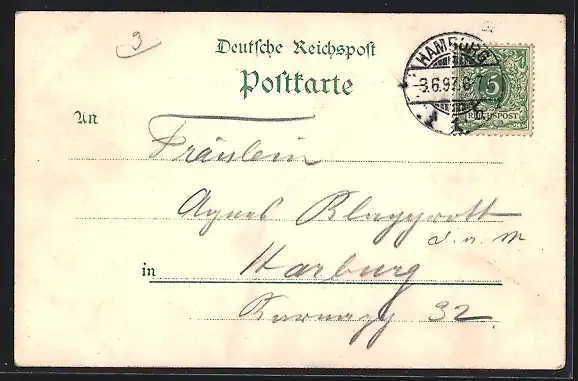 3
Deutsche Reichspost
Postkarte
HAMBURG
3.6.97. 6-
1.
5
REICHSPOST
An
Fräulein
Agnes
in Harburg
32